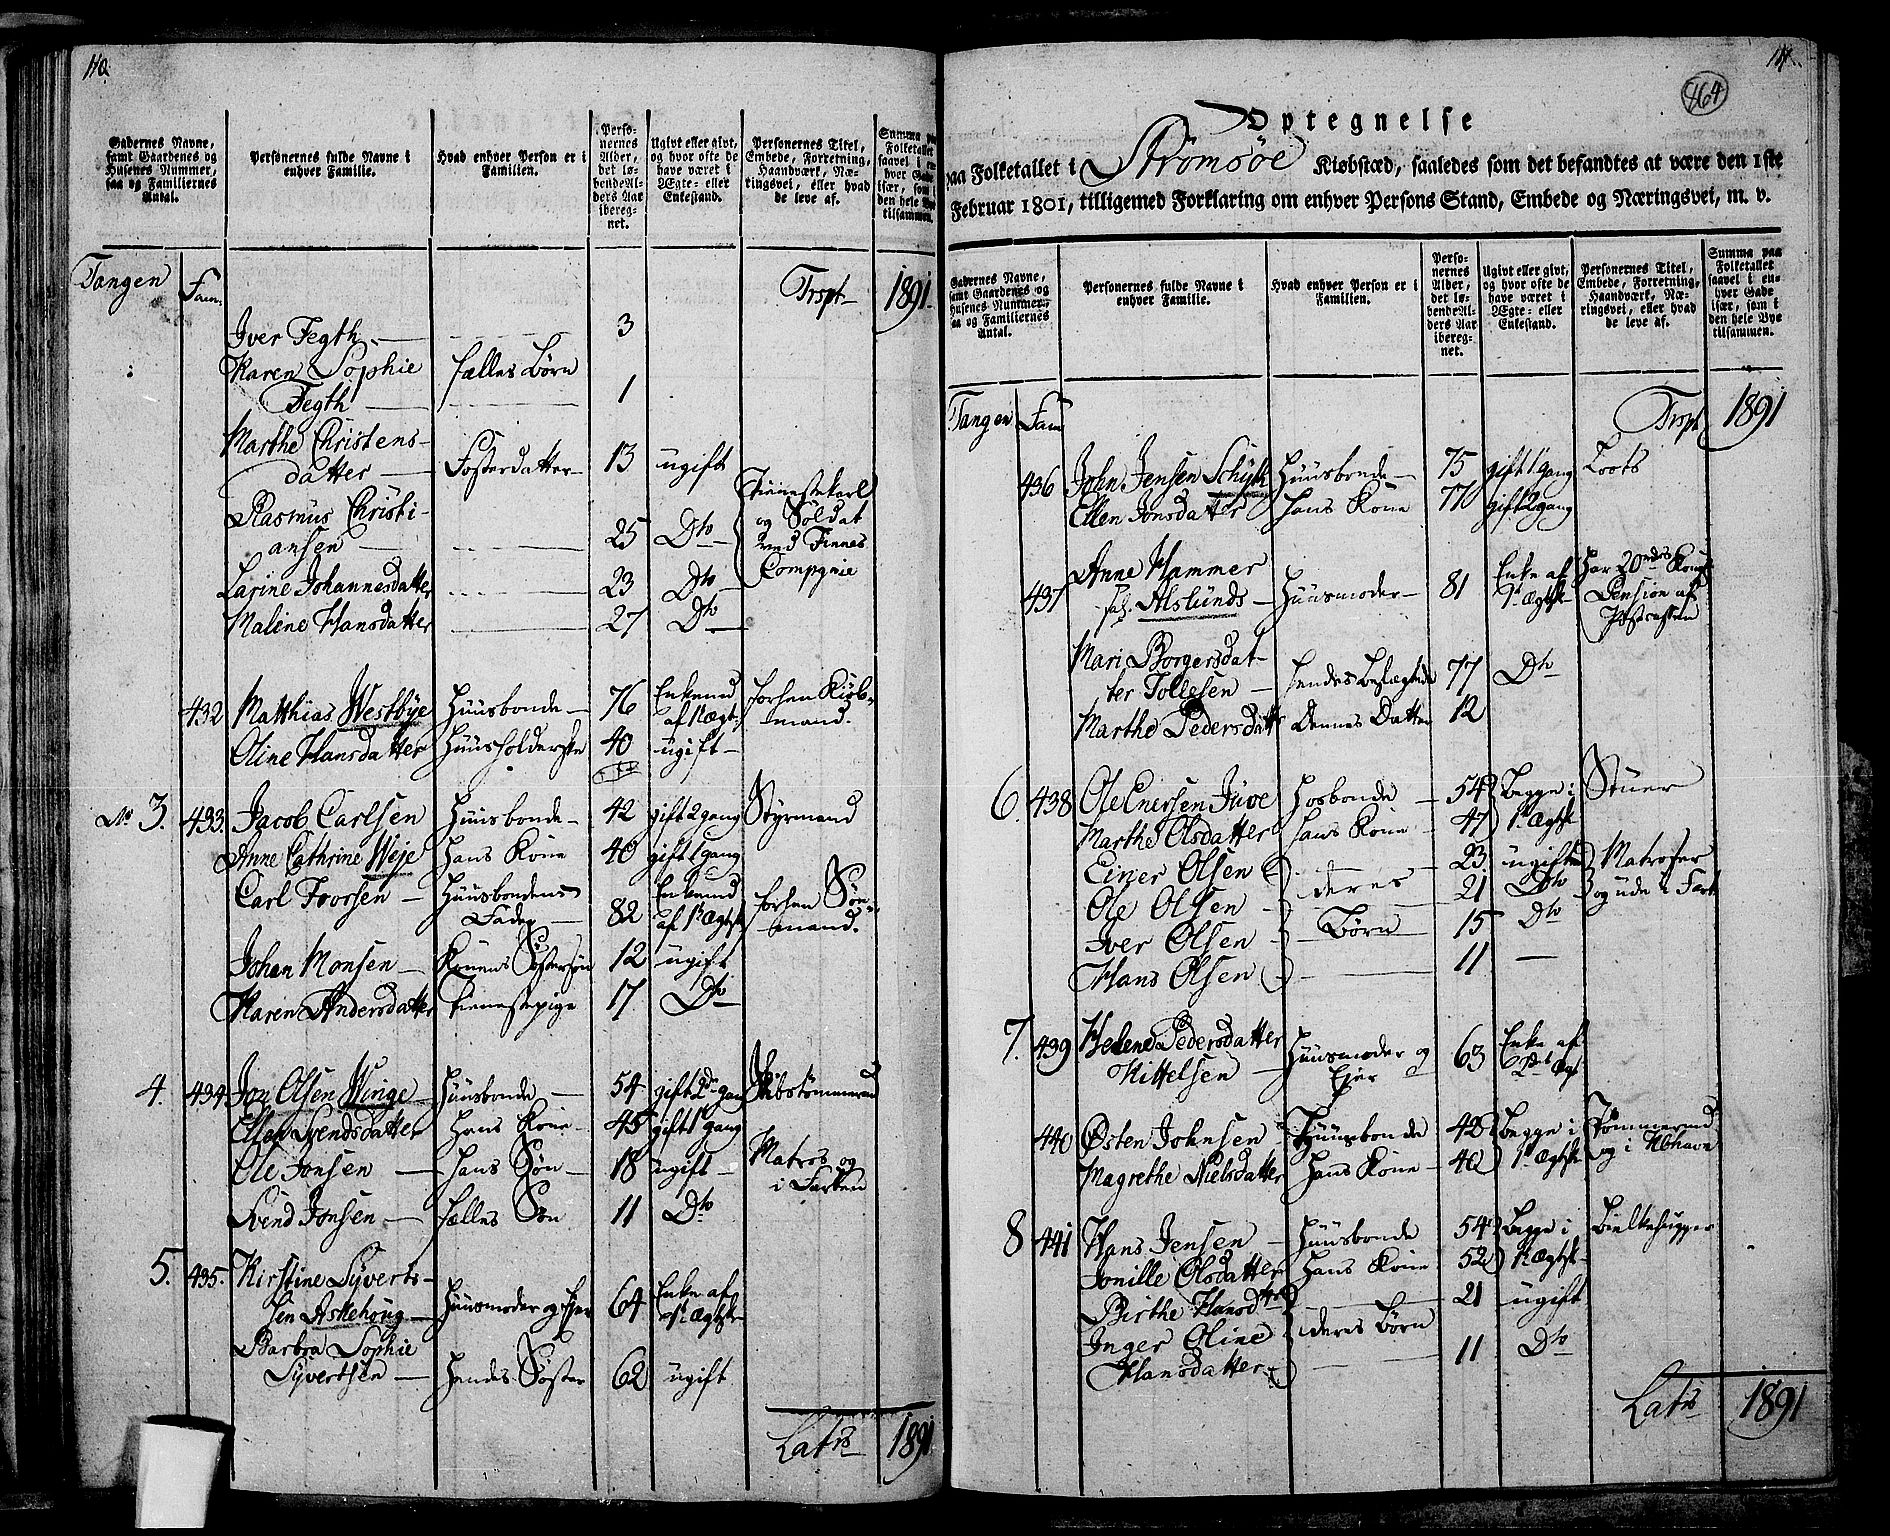 110.
Gadernes Navne,
samt Gaardenes og
Husenes Nummer,
saa og Familiernes
Antal.
Personernes fulde Navne i
enhver Familie.
Hvad enhver Person er i
Familien.
Perso-
nernes
Alder,
det lø-
bende Al-
ders Aar
iberegnet.
Ugivt eller givt,
og hvor ofte de
have været i
Ægte- eller
Enkestand.
Personernes Titel,
Embede, Forretning,
Haandværk, Næ-
ringsvei, eller hvad
de leve af.
Summa paa
Folketallet
Tangen Fam: Trspt 1891.
Iver Fegth — 3
Karen Sophie fælles Børn
Fegth — 1
Marthe Christens-
datter — Fosterdatter 13 ugift
Rasmus Christi-
ansen — 25 Dto
Tienestekarl
og Soldat
ved Finnes
Compgnie
Larine Johannesdatter 23 Dto
Malene Hansdatter 27 Dto
432 Matthias Westbye Huusbonde — 76 Enkemd
af 1 Ægt: forhen Kiøb-
mand.
Oline Hansdatter Huusholderske 40 ugift
No 3. 433. Jacob Carlsen Huusbonde — 42 gift 2 gang Styrmand
Anne Cathrine Weje hans Kone 40 gift 1 gang
Carl Ivorsen — Huusbondens
Fader — 82 Enkemd
af 1 Ægtsk forhen Søe-
mand.
Johan Monsen — Konens Søstersøn 12 ugift
Karen Andersdatter Tienestepige 17 Dto
4. 434 Jon Olsen Wirige Huusbonde — 54 gift 2de gang Skibstømmermd
Ellen Svendsdatter Hans Kone — 45 gift 1 gang
Ole Jonsen — hans Søn — 18 ugift — Matros og
i Farten
Svend Jonsen — fælles Søn 11 Dto
5. 435. Kirstine Syverts-
sen Askehoug — Huusmoder og Ejer 64 Enke af
1 Ægtsk
Barbra Sophie
Syvertsen — Hendes Søster 62 ugift
Lats 1891
111.
464
Optegnelse
paa Folketallet i Strømsøe Kiøbstæd, saaledes som det befandtes at være den 1ste
Februar 1801, tilligemed Forklaring om enhver Persons Stand, Embede og Næringsvei, m. v.
Gadernes Navne,
samt Gaardenes og
Husenes Nummer,
saa og Familiernes
Antal.
Personernes fulde Navne i
enhver Familie.
Hvad enhver Person er i
Familien.
Perso-
nernes
Alder,
det lø-
bende Al-
ders Aar
ibereg-
net.
Ugivt eller givt,
og hvor ofte de
have været i
Ægte- eller
Enkestand.
Personernes Titel,
Embede, Forretning,
Haandværk, Næ-
ringsvei, eller hvad
de leve af.
Summa paa
Folketallet
saavel i en-
hver Gade
især, som i
den hele Bye
tilsammen.
Tangen Fam Trspt 1891
436 John Jensen Schyth Huusbonde — 75 gift 1 gang Loots
Ellen Jonsdatter hans Kone 70 gift 2 gang
437 Anne Hammer
sal. Alslunds — Huusmoder — 81 Enke af
1 Ægtsk Har 20
Pension af
Postcassen
Mari Borgersdat-
ter Tollesen — hendes Beslægtede 77 Dto
Marthe Pedersdatt Dennes Datter 12
6. 438 Ole Enersen Juve Hosbonde — 54 Begge i
1 Ægtsk Stuer
Marthe Olsdatter hans Kone — 47
Einer Olsen 23 ugifte Matroser
og ude i Fart
Ole Olsen — deres 21 Dto
Iver Olsen — Børn 15 Dto
Hans Olsen 11 —
7. 439 Helene Pedersdatter
Kittelsen — Huusmoder og
Ejer 63 Enke af
2det Ægt
440 Østen Johnsen Huusbonde 42 Begge i
1 Ægtsk Tømmermd
og i Kbhavn
Magrethe Nielsdatter Hans Kone — 40
8 441 Hans Jensen — Huusbonde 54 Begge i
1 Ægtsk Bielkehugger
Jonille Olsdatter Hans Kone 52
Birthe Hansd 21 ugift
deres Børn
Inger Oline
Hansdatter 11 Dto
Lats 1891